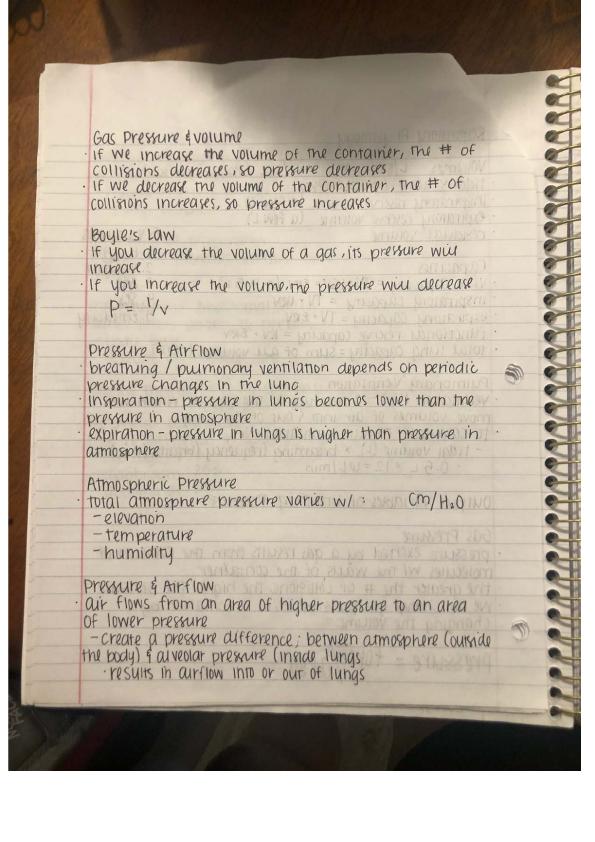 Gas Pressure & volume
· If we increase the volume of the container, the # of
collisions decreases, so pressure decreases
· If we decrease the volume of the container, the # of
collisions increases, so pressure increases
Boyle's Law
· If you decrease the volume of a gas, its pressure will
increase
· If you increase the volume, the pressure will decrease
P = 1/v
Pressure & Airflow
· breathing / pulmonary ventilation depends on periodic
pressure changes in the lung
· Inspiration - pressure in lungs becomes lower than the
pressure in atmosphere
· expiration - pressure in lungs is higher than pressure in
atmosphere
Atmospheric Pressure
· total atmosphere pressure varies w/ : Cm/H2O
- elevation
- temperature
- humidity
Pressure & Airflow
· air flows from an area of higher pressure to an area
of lower pressure
- create a pressure difference; between atmosphere (outside
the body) & alveolar pressure (inside lungs
· results in airflow into or out of lungs